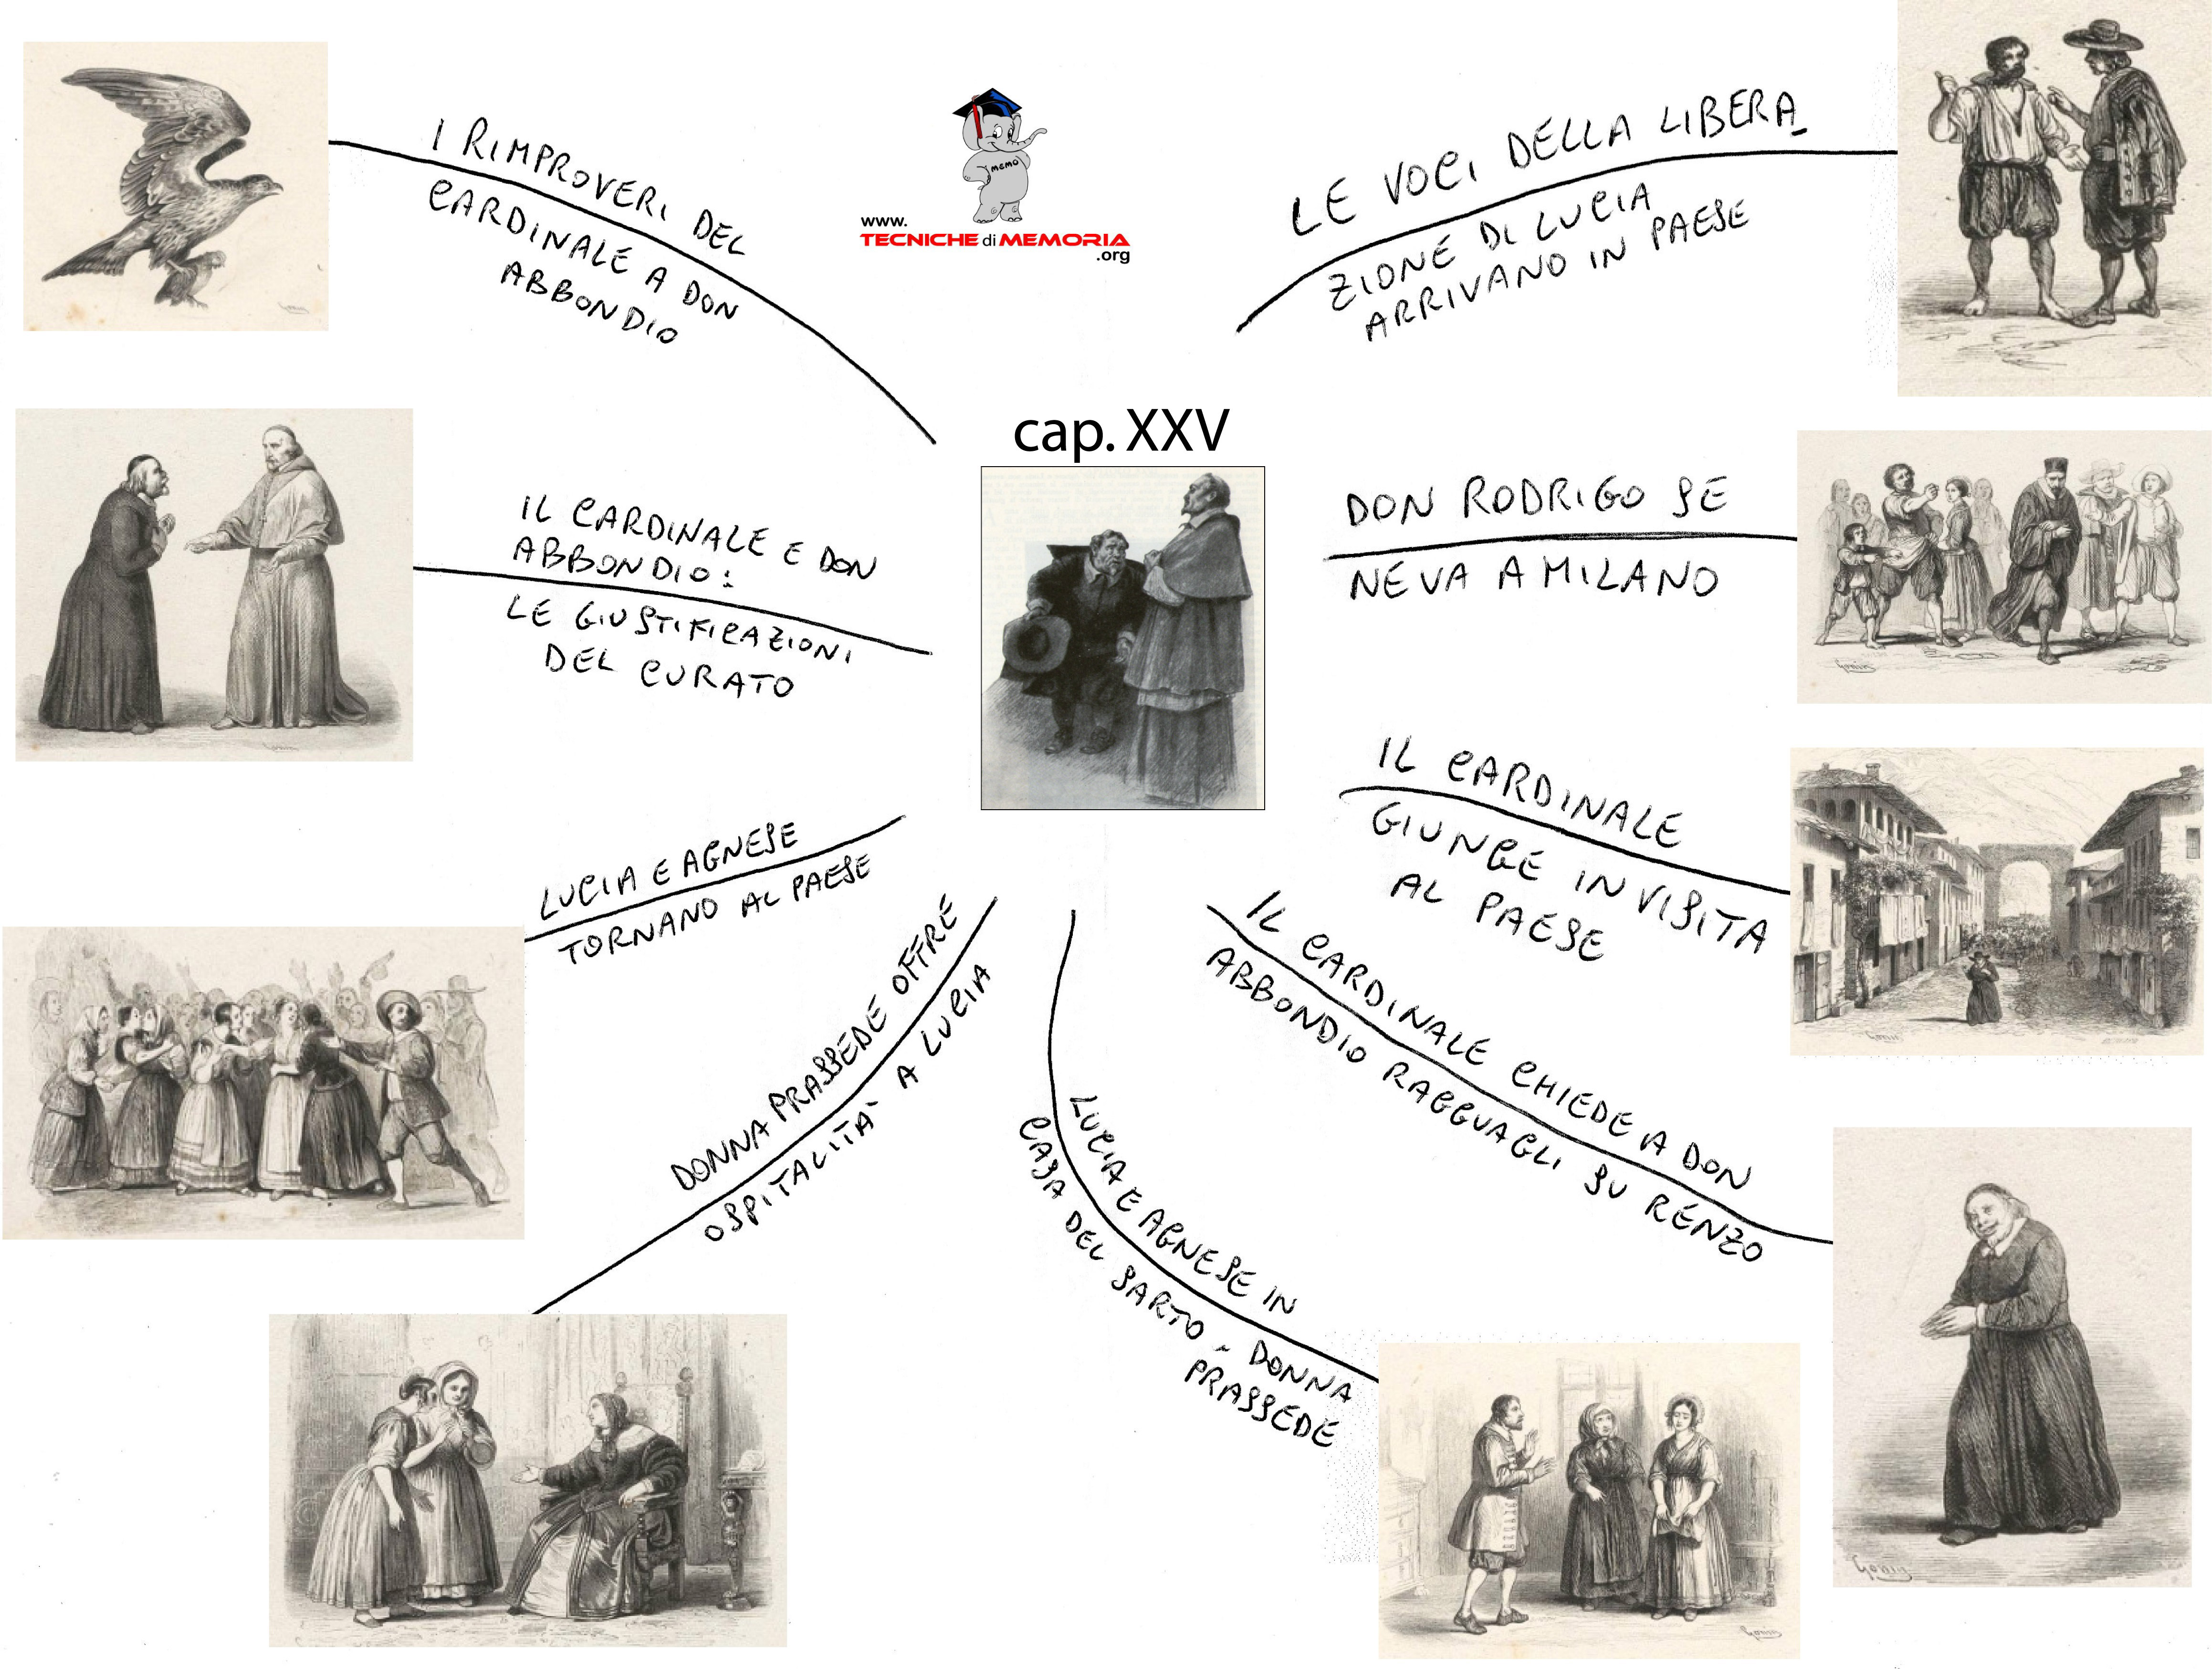 www.
TECNICHE di MEMORIA
.org
MEMO
cap. XXV
LE VOCI DELLA LIBERA_
ZIONE DI LUCIA
ARRIVANO IN PAESE
DON RODRIGO SE
NE VA A MILANO
IL CARDINALE
GIUNGE IN VISITA
AL PAESE
IL CARDINALE CHIEDE A DON
ABBONDIO RAGGUAGLI SU RENZO
LUCIA E AGNESE IN
CASA DEL SARTO - DONNA
PRASSEDE
DONNA PRASSEDE OFFRE
OSPITALITÀ A LUCIA
LUCIA E AGNESE
TORNANO AL PAESE
IL CARDINALE E DON
ABBONDIO:
LE GIUSTIFICAZIONI
DEL CURATO
I RIMPROVERI DEL
CARDINALE A DON
ABBONDIO
Gonin
Gonin
Gonin
Gonin